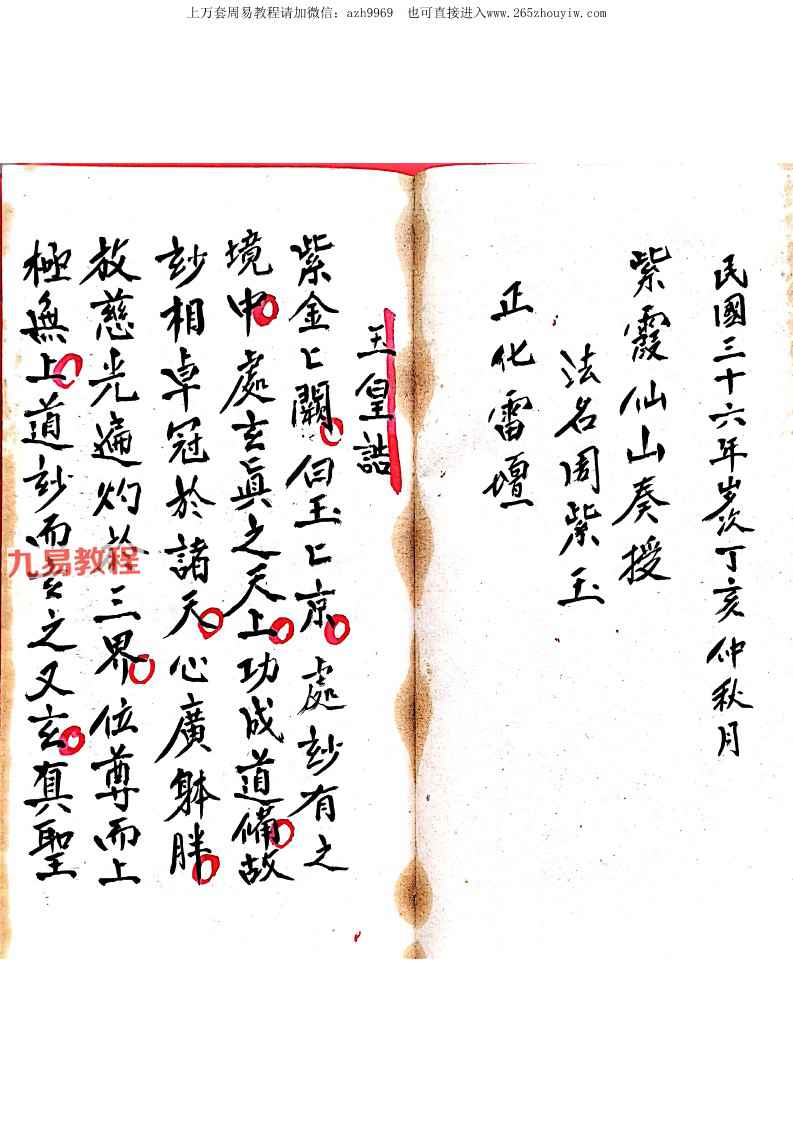 上万套周易教程请加微信：azh9969 也可直接进入www.265zhouyiw.com
民國三十六年岁次丁亥仲秋月
紫霞仙山奏授
法名周紫玉
正化雷壇
玉皇誥
紫金匕闕白玉匕京處玅有之
境中處玄眞之天上功成道備故
玅相卓冠於諸天心廣躰胖
放慈光遍灼於三界位尊而上
極無上道玅而玄之又玄真聖
九易教程